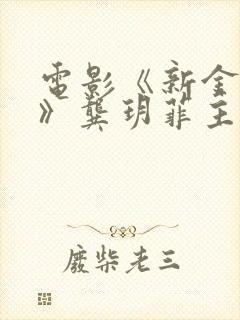 電影《新金
》龔玥菲主
廢柴老三